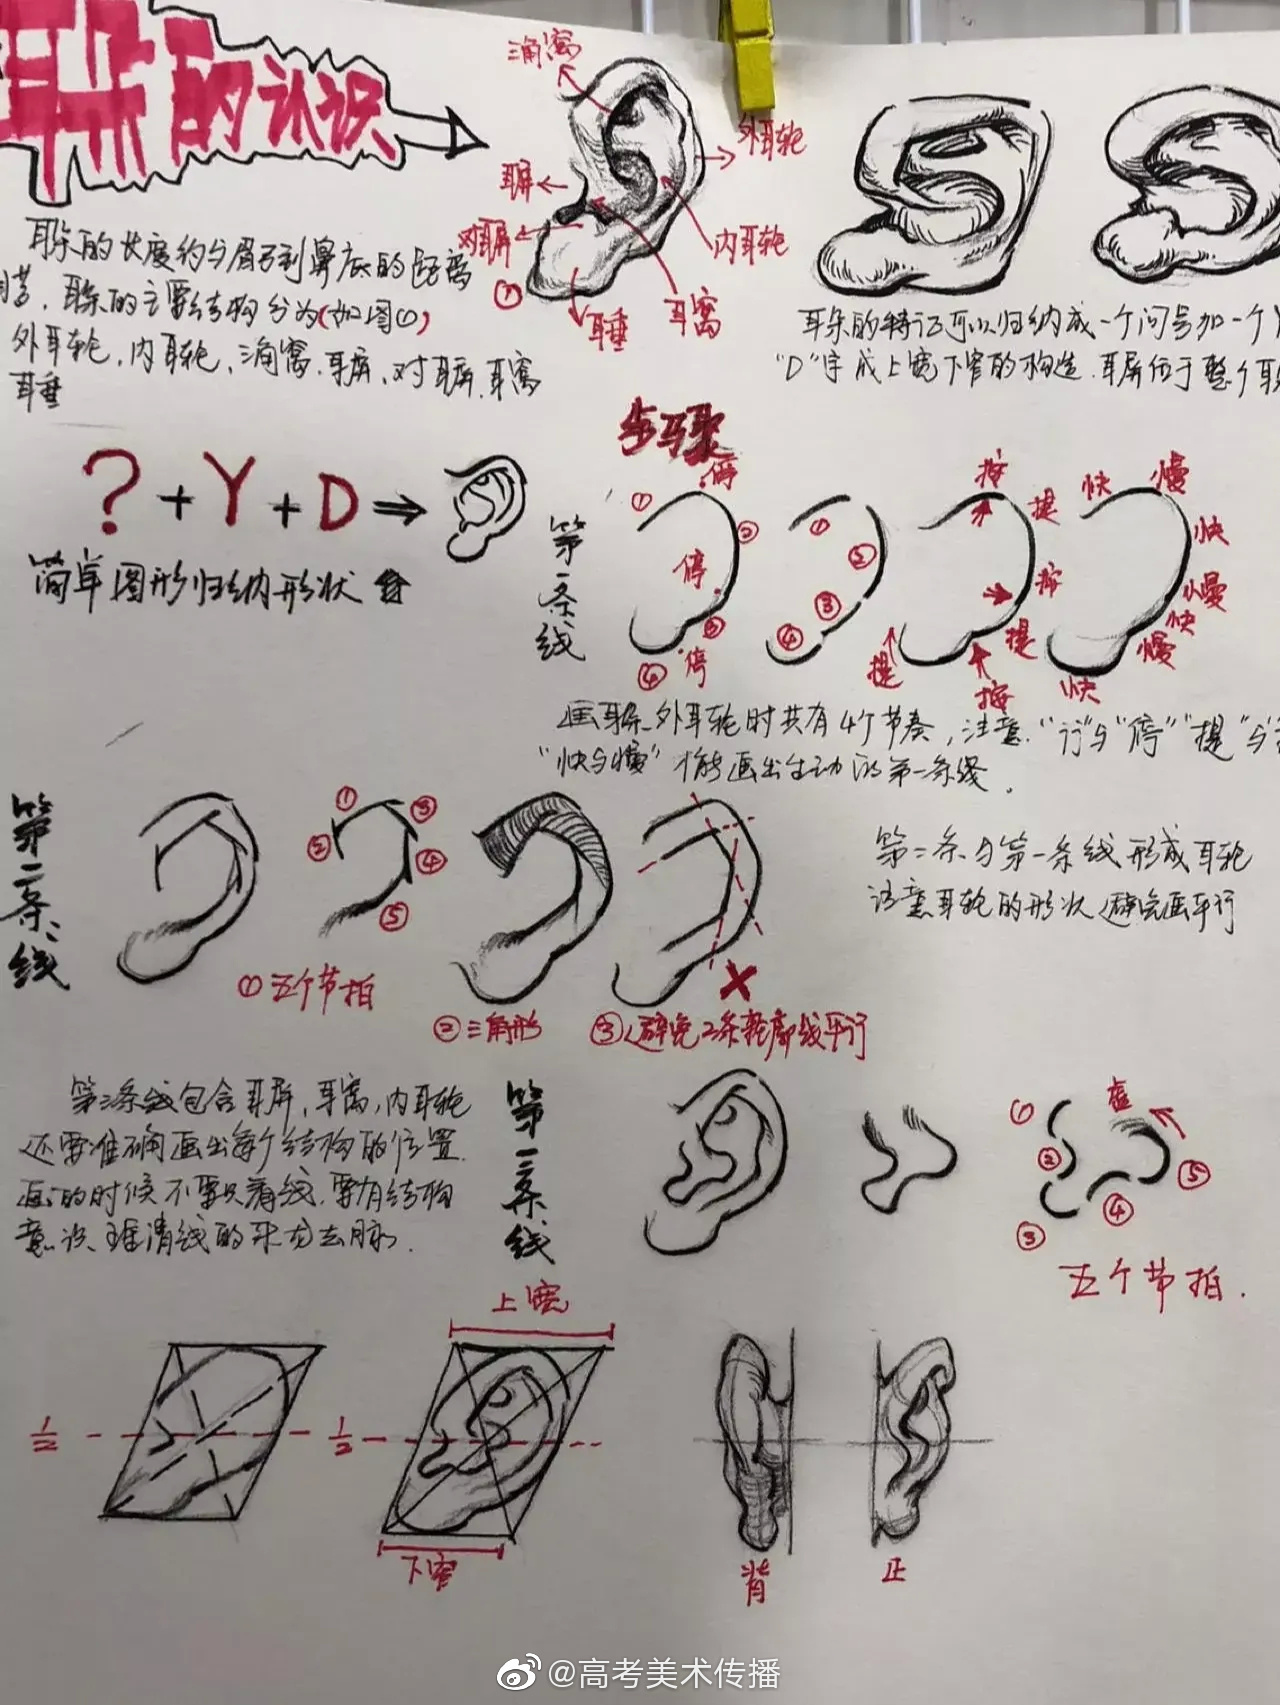 耳朵的认识
三角窝
外耳轮
耳屏
对耳屏
内耳轮
①
耳垂
耳窝
耳朵的长度约与眉弓到鼻底的距离
耳朵的主要结构分为(如图①)
外耳轮,内耳轮,三角窝.耳屏、对耳屏.耳窝
耳垂
耳朵的特征可以归纳成一个问号加一个
"D"字成上宽下窄的构造.耳屏位于整个耳
?+Y+D⇒
简单图形归纳形状
步骤
第一条线
① 停 ② 停 ③ 停 ④
① ② ③ ④
按 提 按 提 按 提
快 慢 快 慢 快 慢 快
画耳朵外耳轮时共有4个节奏,注意"行"与"停""提"与
"快与慢"才能画出生动的第一条线.
第二条线
① ② ③ ④ ⑤
①五个节拍
②三角形
③避免2条轮廓线平行
第二条与第一条线形成耳轮
注意耳轮的形状避免画平行
第三条线包含耳屏,耳窝,内耳轮
还要准确画出每个结构的位置.
画的时候不要只看线.要有结构
意识.理清线的来龙去脉.
第三条线
① ② ③ ④ ⑤ 虚
五个节拍.
上宽
1/2
1/2
下窄
背
正
@高考美术传播